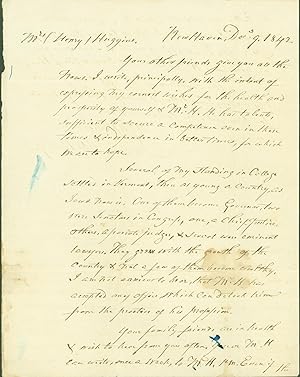 Mrs Henry Huggins.
New Haven, Dec. 9. 1842
Your other friends give you all the
News. I write, principally, with the intent of
expressing my earnest wishes for the health and
prosperity of yourself & Mr. H. He has talents,
sufficient to secure a Competence even in these
times & independence in better times, for which
we are to hope.
Several of my Standing in College
settled in Vermont, then as young a Country, as
Iowa now is. One of them became Governor, two
were Senators in Congress, one, a Chief Justice,
others, associate judges, & several were eminent
lawyers. They grew with the growth of the
Country & not a few of them became wealthy.
I am not anxious to hear that Mr. H. has
accepted any office which can detach him
from the practice of his profession.
Your family friends are in health
& wish to hear from you often, you or Mr. H
can write, once a week, to